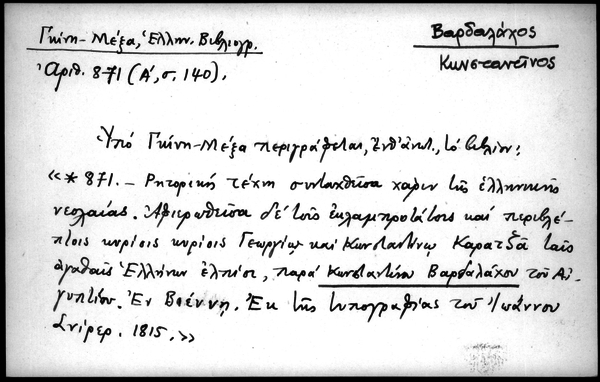 Γκίνη-Μέξα, Ἑλλην. Βιβλιογρ.
Ἀριθ. 871 (Α', σ. 140).
Βαρδαλάχος
Κωνσταντῖνος
Ὑπό Γκίνη-Μέξα περιγράφεται, ἔνθ' ἀνωτ., τό βιβλίον:
«*871. – Ρητορική τέχνη συνταχθεῖσα χάριν τῆς ἑλληνικῆς
νεολαίας. Ἀφιερωθεῖσα δέ τοῖς ἐκλαμπροτάτοις καί περιβλέ-
πτοις κυρίοις κυρίοις Γεωργίῳ καί Κωνσταντίνῳ Καρατζᾶ ταῖς
ἀγαθαῖς Ἑλλήνων ἐλπίσι, παρά Κωνσταντίνου Βαρδαλάχου τοῦ Αἰ-
γυπτίου. Ἐν Βιέννῃ. Ἐκ τῆς τυπογραφίας τοῦ Ἰωάννου
Σνίρερ. 1815.»